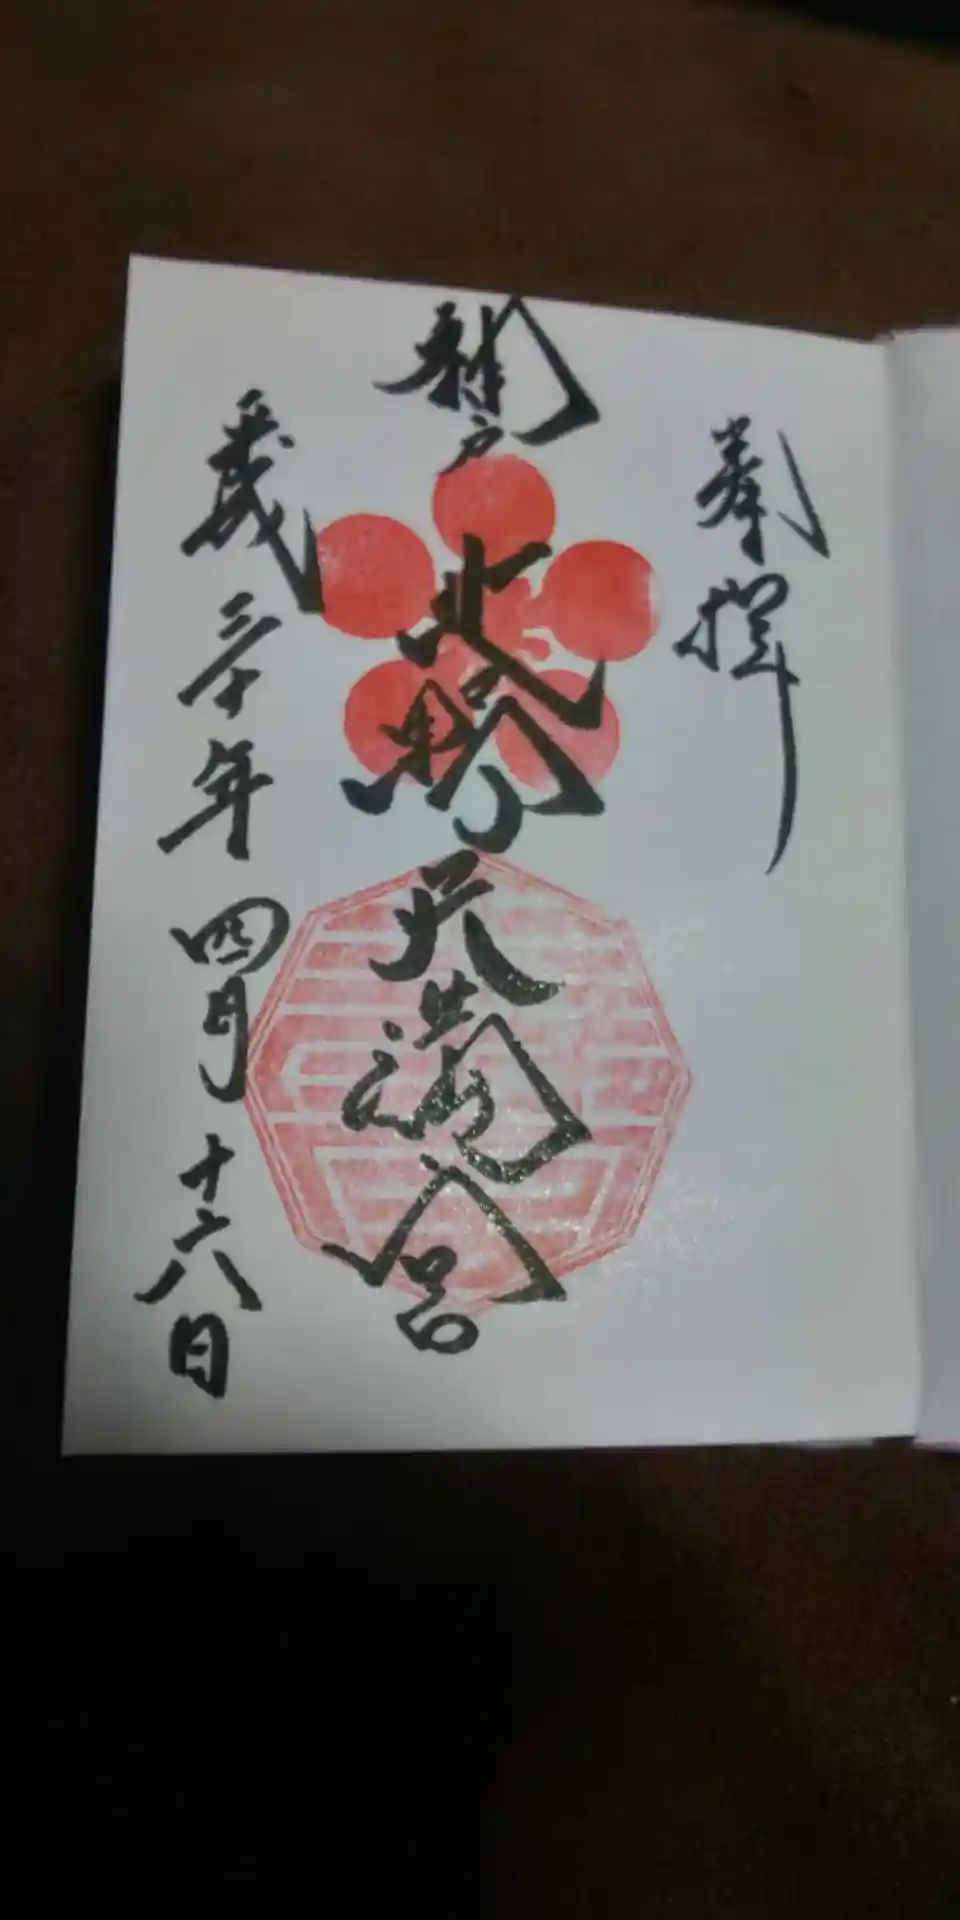 奉拝
北野天満宮
平成三十年四月十六日